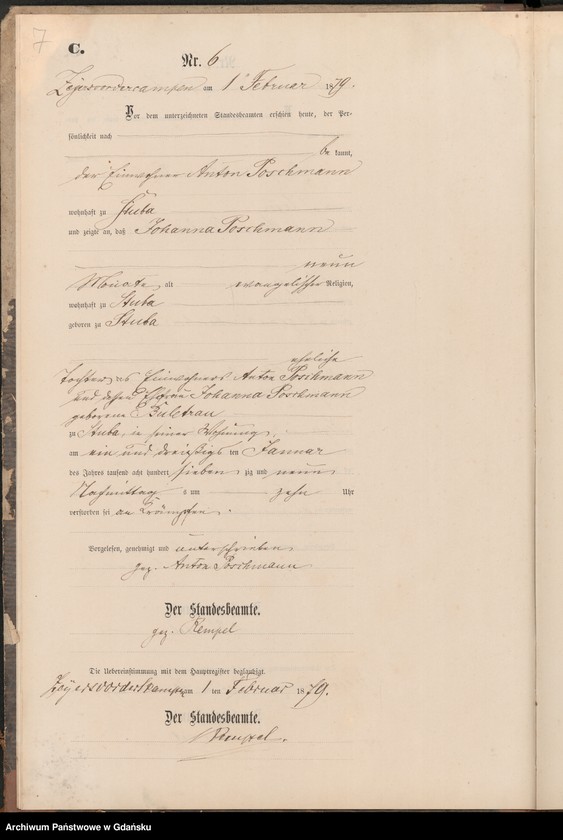 7
C.
Nr. 6
Zeyersvordercampen am 1t Februar 1879.
Vor dem unterzeichneten Standesbeamten erschien heute, der Per-
sönlichkeit nach
be kannt,
der Einwohner Anton Poschmann
wohnhaft zu Stuba
und zeigte an, daß Johanna Poschmann
neun
Monate alt evangelischer Religion,
wohnhaft zu Stuba
geboren zu Stuba
eheliche
Tochter des Einwohners Anton Poschmann
und dessen Ehefrau Johanna Poschmann
geborene
zu Stuba, in seiner Wohnung
am ein und dreißigsten Januar
des Jahres tausend acht hundert sieben zig und neun
Nachmittags um zehn Uhr
verstorben sei an Krämpfen.
Vorgelesen, genehmigt und unterschrieben
gez. Anton Poschmann
Der Standesbeamte.
gez. Rempel
Die Uebereinstimmung mit dem Hauptregister beglaubigt.
Zeyersvorderkampen am 1 ten Februar 1879.
Der Standesbeamte.
Rempel.
Archiwum Państwowe w Gdańsku